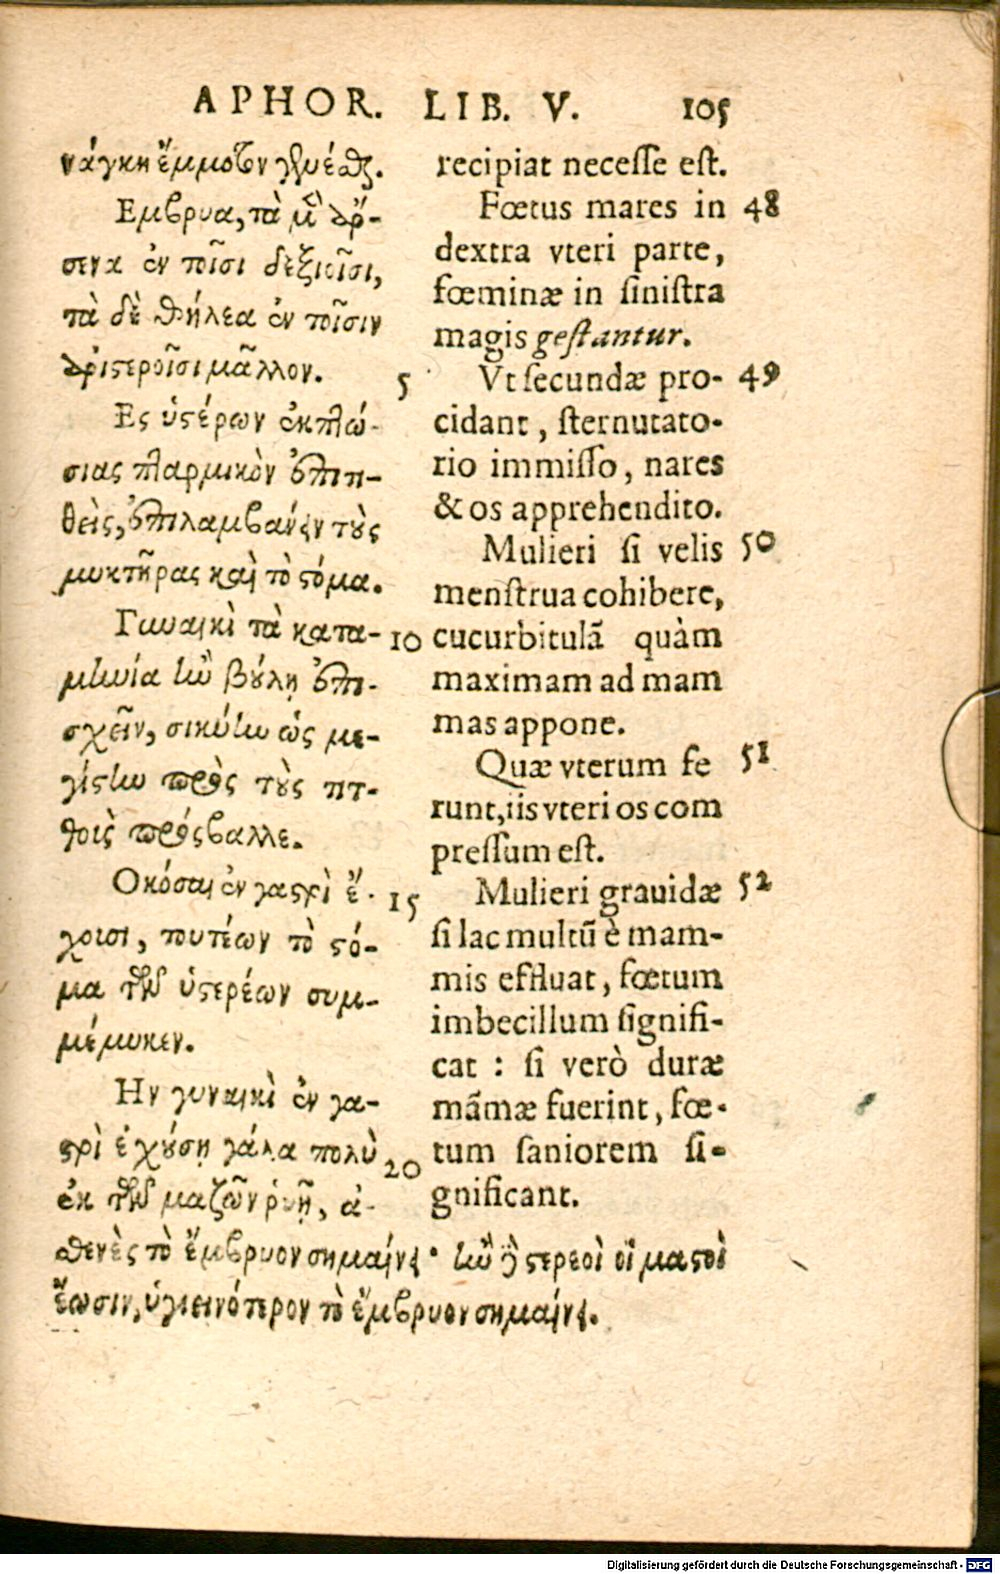 APHOR. LIB. V. 105
νάγκη ἔμμοτον γενέσθαι.
Εμβρυα, τὰ μὲν ἄρ-
σενα ἐν τοῖσι δεξιοῖσι,
τὰ δὲ θήλεα ἐν τοῖσιν
ἀριστεροῖσι μᾶλλον.
5
Ες ὑστέρων ἐκπτώ-
σιας πταρμικὸν ἐπιτι-
θεὶς, ἐπιλαμβάνειν τοὺς
μυκτῆρας καὶ τὸ στόμα.
Γυναικὶ τὰ κατα-
10
μηνία ἢν βούλῃ ἐπι-
σχεῖν, σικύην ὡς με-
γίστην πρὸς τοὺς τιτ-
θοὺς πρόσβαλλε.
Οκόσαι ἐν γαστρὶ ἔ-
15
χουσι, τουτέων τὸ στό-
μα τῶν ὑστερέων συμ-
μέμυκεν.
Ην γυναικὶ ἐν γα-
στρὶ ἐχούσῃ γάλα πολὺ
20
ἐκ τῶν μαζῶν ῥυῇ, ἀ-
σθενὲς τὸ ἔμβρυον σημαίνει· ἢν δὲ στερεοὶ οἱ μαστοὶ
ἔωσιν, ὑγιεινότερον τὸ ἔμβρυον σημαίνει.
recipiat necesse est.
Fœtus mares in 48
dextra vteri parte,
fœminæ in sinistra
magis gestantur.
Vt secundæ pro- 49
cidant, sternutato-
rio immisso, nares
& os apprehendito.
Mulieri si velis 50
menstrua cohibere,
cucurbitulã quàm
maximam ad mam
mas appone.
Quæ vterum fe 51
runt, iis vteri os com
pressum est.
Mulieri grauidæ 52
si lac multũ è mam-
mis effluat, fœtum
imbecillum signifi-
cat : si verò duræ
mãmæ fuerint, fœ-
tum saniorem si-
gnificant.
Digitalisierung gefördert durch die Deutsche Forschungsgemeinschaft - DFG